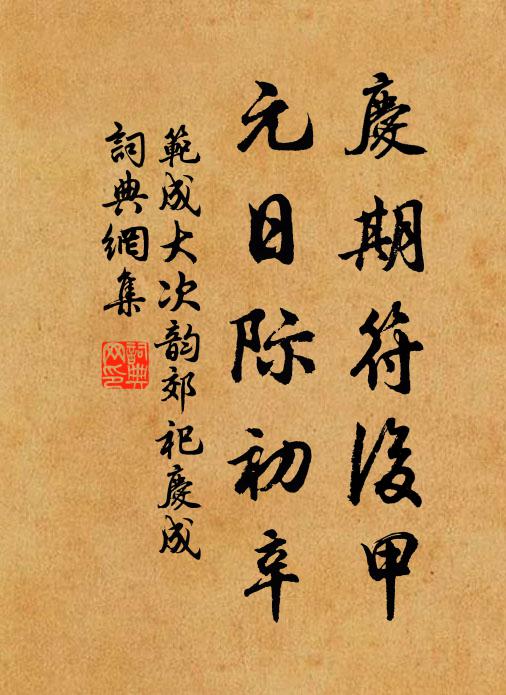 慶期符後甲
元日际初辛
範成大次韵郊祀慶成
詞典網集
詞典網印